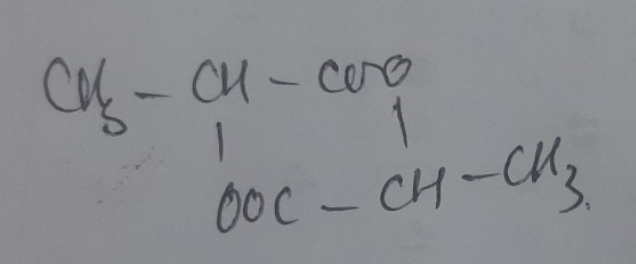 CH3 – CH – COO
| |
OOC – CH – CH3.